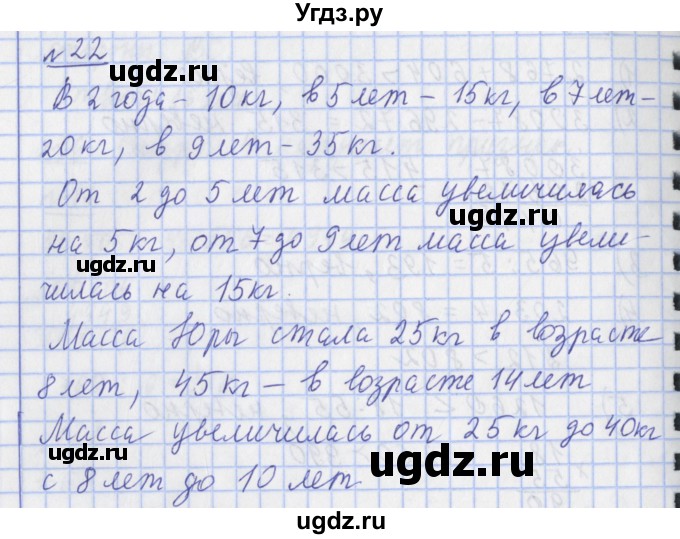 Угдз.ру
№22
В 2 года - 10 кг, в 5 лет - 15 кг, в 7 лет -
20 кг, в 9 лет - 35 кг.
От 2 до 5 лет масса увеличилась
на 5 кг, от 7 до 9 лет масса увели-
чилась на 15 кг.
Масса Юры стала 25 кг в возрасте
8 лет, 45 кг - в возрасте 14 лет
Масса увеличилась от 25 кг до 40 кг
с 8 лет до 10 лет
ugdz.ru
ugdz.ru
ugdz.ru
ugdz.ru
ugdz.ru
ugdz.ru
ugdz.ru
ugdz.ru